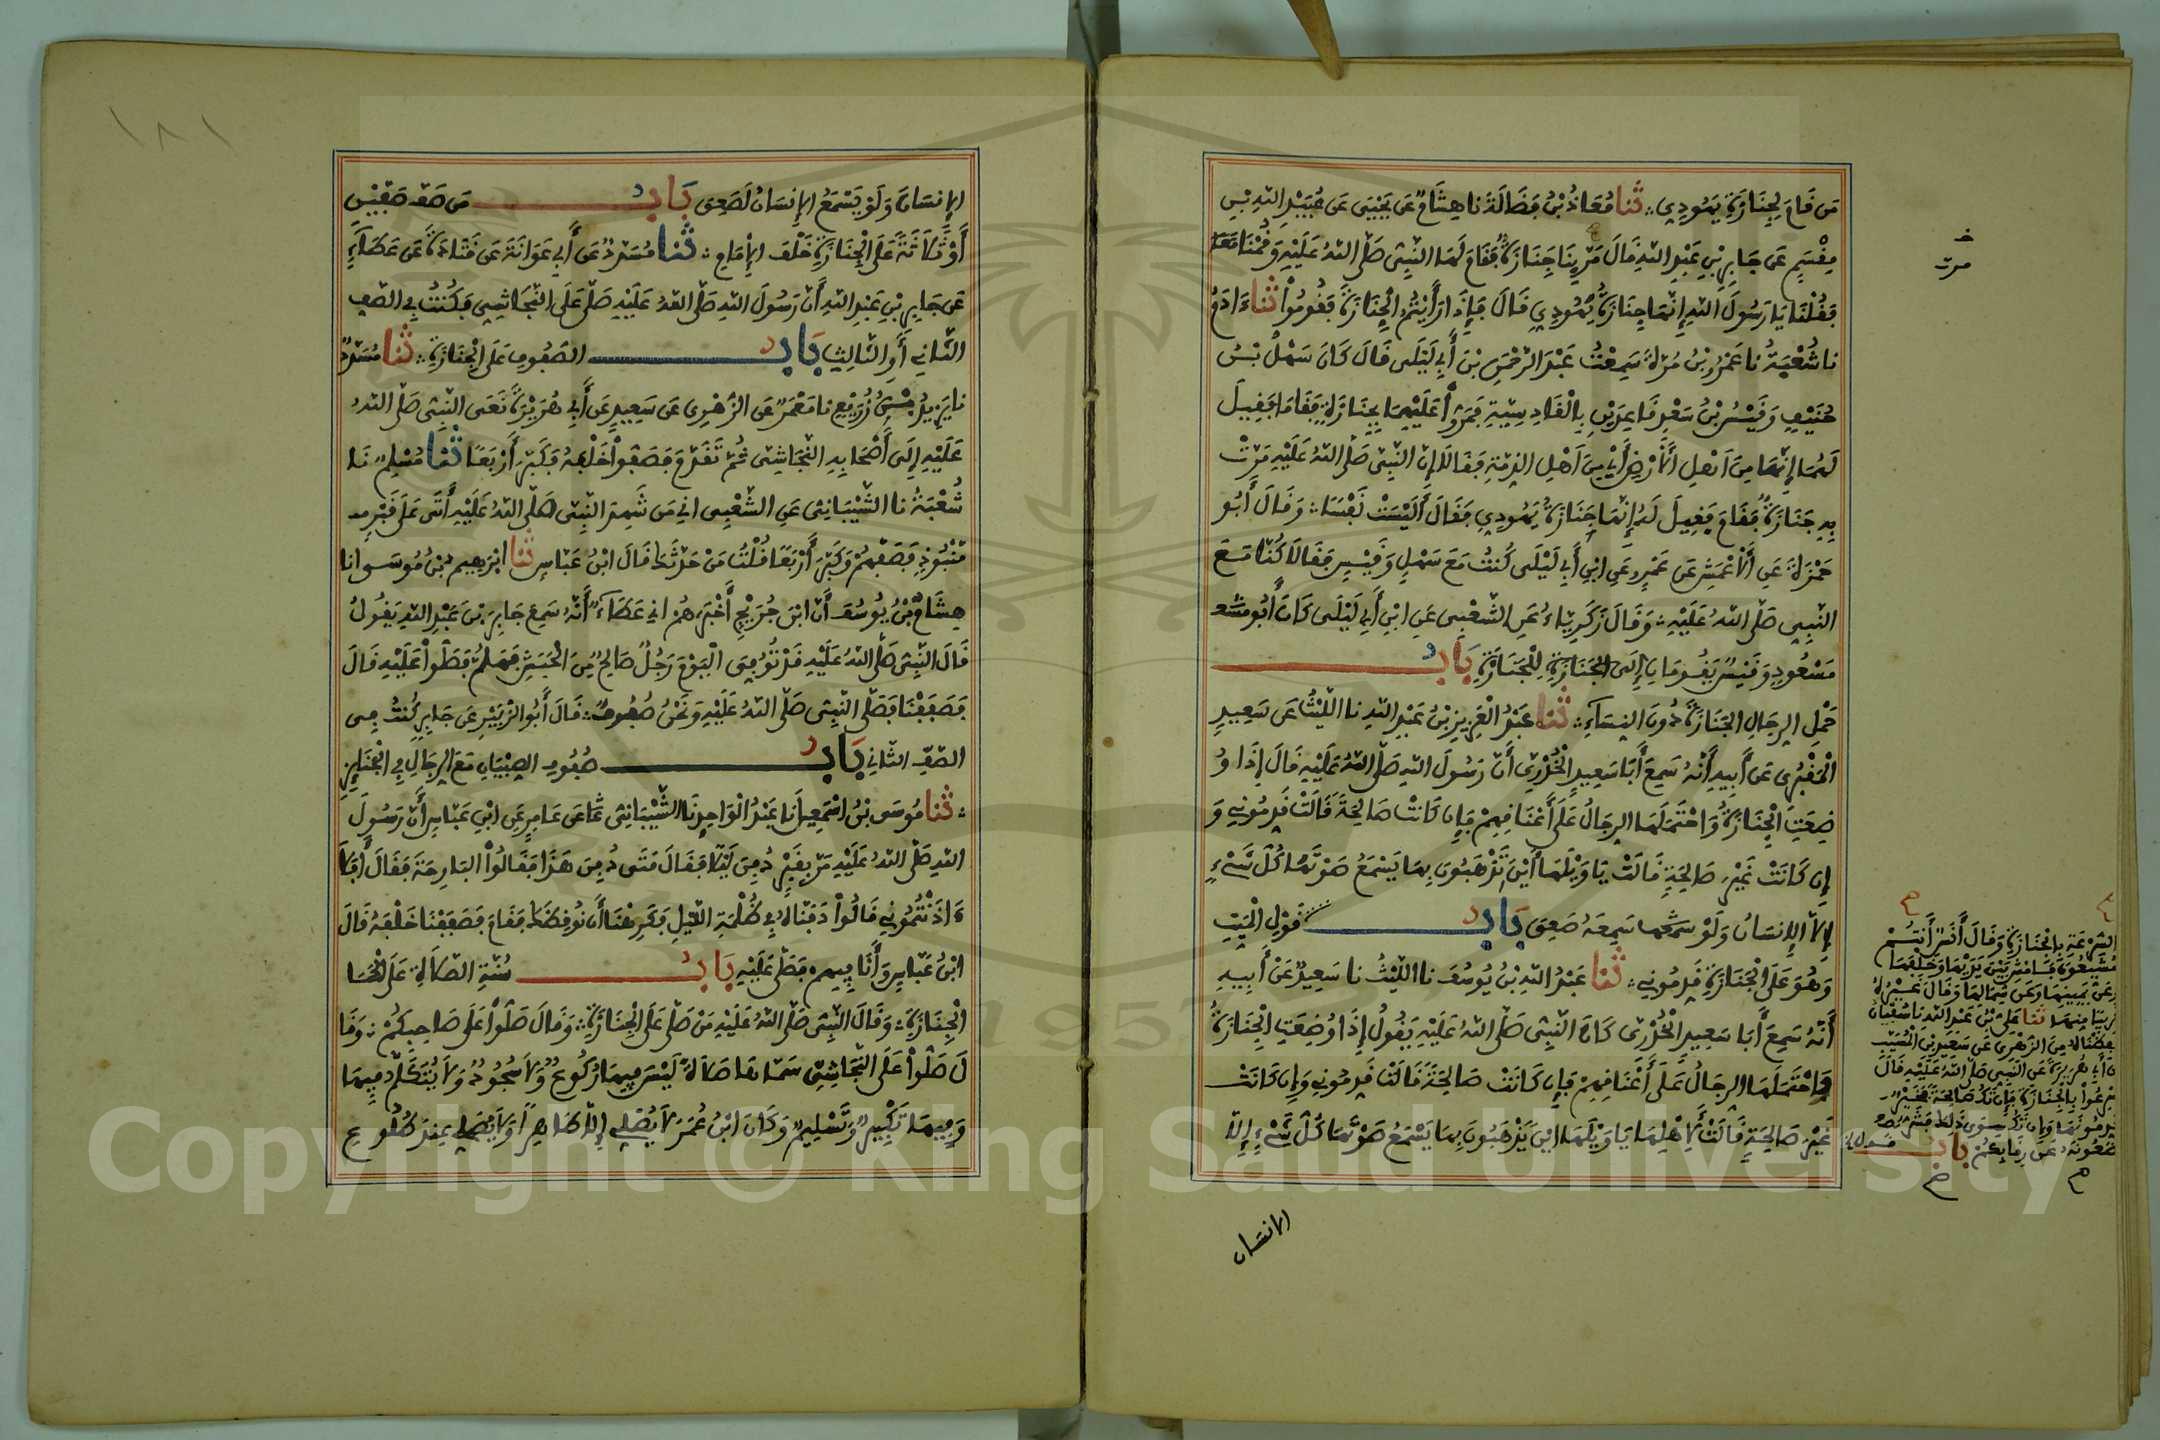 من قام لجنازة يهودي ثنا معاذ بن فضالة نا هشام عن يحيى عن عبيد الله بن
مقسم عن جابر بن عبد الله قال مر بنا جنازة فقام لها النبي صلى الله عليه وقمنا معه
فقلنا يا رسول الله إنها جنازة يهودي قال فإذا رأيتم الجنازة فقوموا ثنا ءادم
نا شعبة نا عمرو بن مرة سمعت عبد الرحمن بن أبي ليلى قال كان سهل بن
حنيف وقيس بن سعد قاعدين بالقادسية فمروا عليهما بجنازة فقاما فقيل
لهما إنها من أهل الأرض أي من أهل الذمة فقالا إن النبي صلى الله عليه مرت
به جنازة فقام فقيل له إنها جنازة يهودي فقال أليست نفسا وقال أبو
حمزة عن الأعمش عن عمرو عن ابن أبي ليلى كنت مع سهل وقيس فقالا كنا مع
النبي صلى الله عليه وقال زكرياء عن الشعبي عن ابن أبي ليلى كان أبو
مسعود وقيس يقومان إلى الجنازة للجنازة باب
حمل الرجال الجنازة دون النساء ثنا عبد العزيز بن عبد الله نا الليث عن سعيد
المقبري عن أبيه أنه سمع أبا سعيد الخدري أن رسول الله صلى الله عليه قال إذا و
ضعت الجنازة واحتملها الرجال على أعناقهم فإن كانت صالحة قالت قدموني و
إن كانت غير صالحة قالت يا ويلها أين تذهبون بها يسمع صوتها كل شيء
إلا الإنسان ولو سمعه صعق باب قول الميت
وهو على الجنازة قدموني ثنا عبد الله بن يوسف نا الليث نا سعيد عن أبيه
أنه سمع أبا سعيد الخدري كان النبي صلى الله عليه يقول إذا وضعت الجنازة
فاحتملها الرجال على أعناقهم فإن كانت صالحة قالت قدموني وإن كانت
غير صالحة قالت لأهلها يا ويلها أين يذهبون بها يسمع صوتها كل شيء إلا
الانسان
السرعة بالجنازة وقال أنس أنتم
مشيعون فامش بين يديها وخلفها
وعن يمينها وعن شمالها وقال غيره
قريبا منها ثنا علي بن عبد الله نا سفيان
حفظناه من الزهري عن سعيد بن المسيب
عن أبي هريرة عن النبي صلى الله عليه قال
أسرعوا بالجنازة فإن تك صالحة فخير
تقدمونها وإن تك سوى ذلك فشر
تضعونه عن رقابكم باب
١٨١
الإنسان ولو يسمع الإنسان لصعق باب من صف صفين
أو ثلاثة على الجنازة خلف الإمام ثنا مسدد عن أبي عوانة عن قتادة عن عطاء
عن جابر بن عبد الله أن رسول الله صلى الله عليه صلى على النجاشي فكنت في الصف
الثاني أو الثالث باب الصفوف على الجنازة ثنا مسدد
نا يزيد بن زريع نا معمر عن الزهري عن سعيد عن أبي هريرة نعى النبي صلى الله
عليه إلى أصحابه النجاشي ثم تقدم فصفوا خلفه فكبر أربعا ثنا مسلم نا
شعبة نا الشيباني عن الشعبي اني من شهد النبي صلى الله عليه أتى على قبر
منبوذ فصفهم وكبر أربعا قلت من حدثك قال ابن عباس ثنا ابرهيم بن موسى انا
هشام بن يوسف أن ابن جريج أخبرهم اني عطاء أنه سمع جابر بن عبد الله يقول
قال النبي صلى الله عليه قد توفي اليوم رجل صالح من الحبش فهلم فصلوا عليه قال
فصففنا فصلى النبي صلى الله عليه ونحن صفوف قال أبو الزبير عن جابر كنت في
الصف الثاني باب صفوف الصبيان مع الرجال في الجنائز
ثنا موسى بن اسمعيل نا عبد الواحد نا الشيباني عن عامر عن ابن عباس أن رسول
الله صلى الله عليه مر بقبر دفن ليلا فقال متى دفن هذا فقالوا البارحة فقال أفلا
ءاذنتموني قالوا دفناه في ظلمة الليل فكرهنا أن نوقظك فقام فصففنا خلفه قال
ابن عباس وأنا فيهم فصلى عليه باب سنة الصلاة على
الجنازة وقال النبي صلى الله عليه من صلى على الجنازة وقال صلوا على صاحبكم وقا
ل صلوا على النجاشي سماها صلاة ليس فيها ركوع ولا سجود ولا يتكلم فيها
وفيها تكبير وتسليم وكان ابن عمر لا يصلي إلا طاهرا ولا يصلي عند طلوع